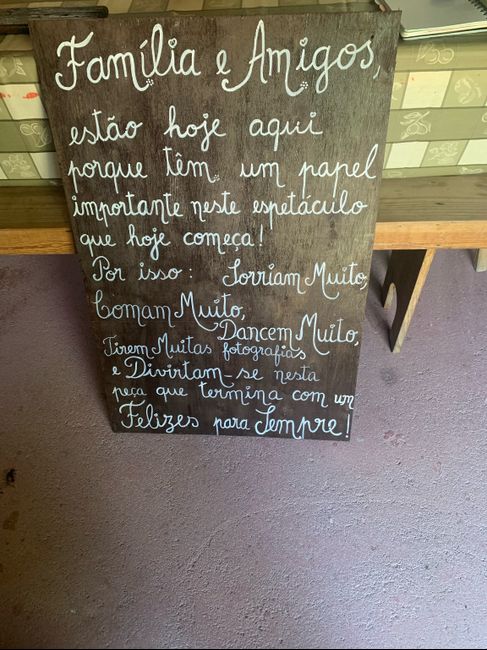 Família e Amigos,
estão hoje aqui
porque têm um papel
importante neste espetáculo
que hoje começa!
Por isso: Sorriam Muito,
Comam Muito,
Dancem Muito,
Tirem Muitas fotografias
e Divirtam-se nesta
peça que termina com um
Felizes para Sempre!